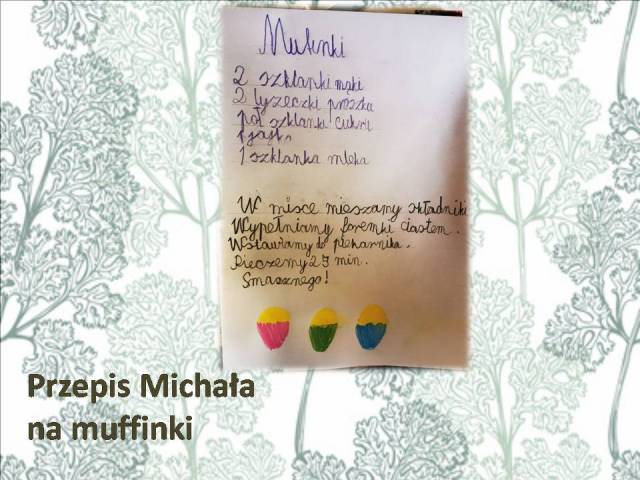 Mufinki
2 szklanki mąki
2 łyżeczki proszku
pół szklanki cukru
1 jajko
1 szklanka mleka
W misce mieszamy składniki
Wypełniamy foremki ciastem.
Wstawiamy do piekarnika.
Pieczemy 25 min.
Smacznego!
Przepis Michała
na muffinki